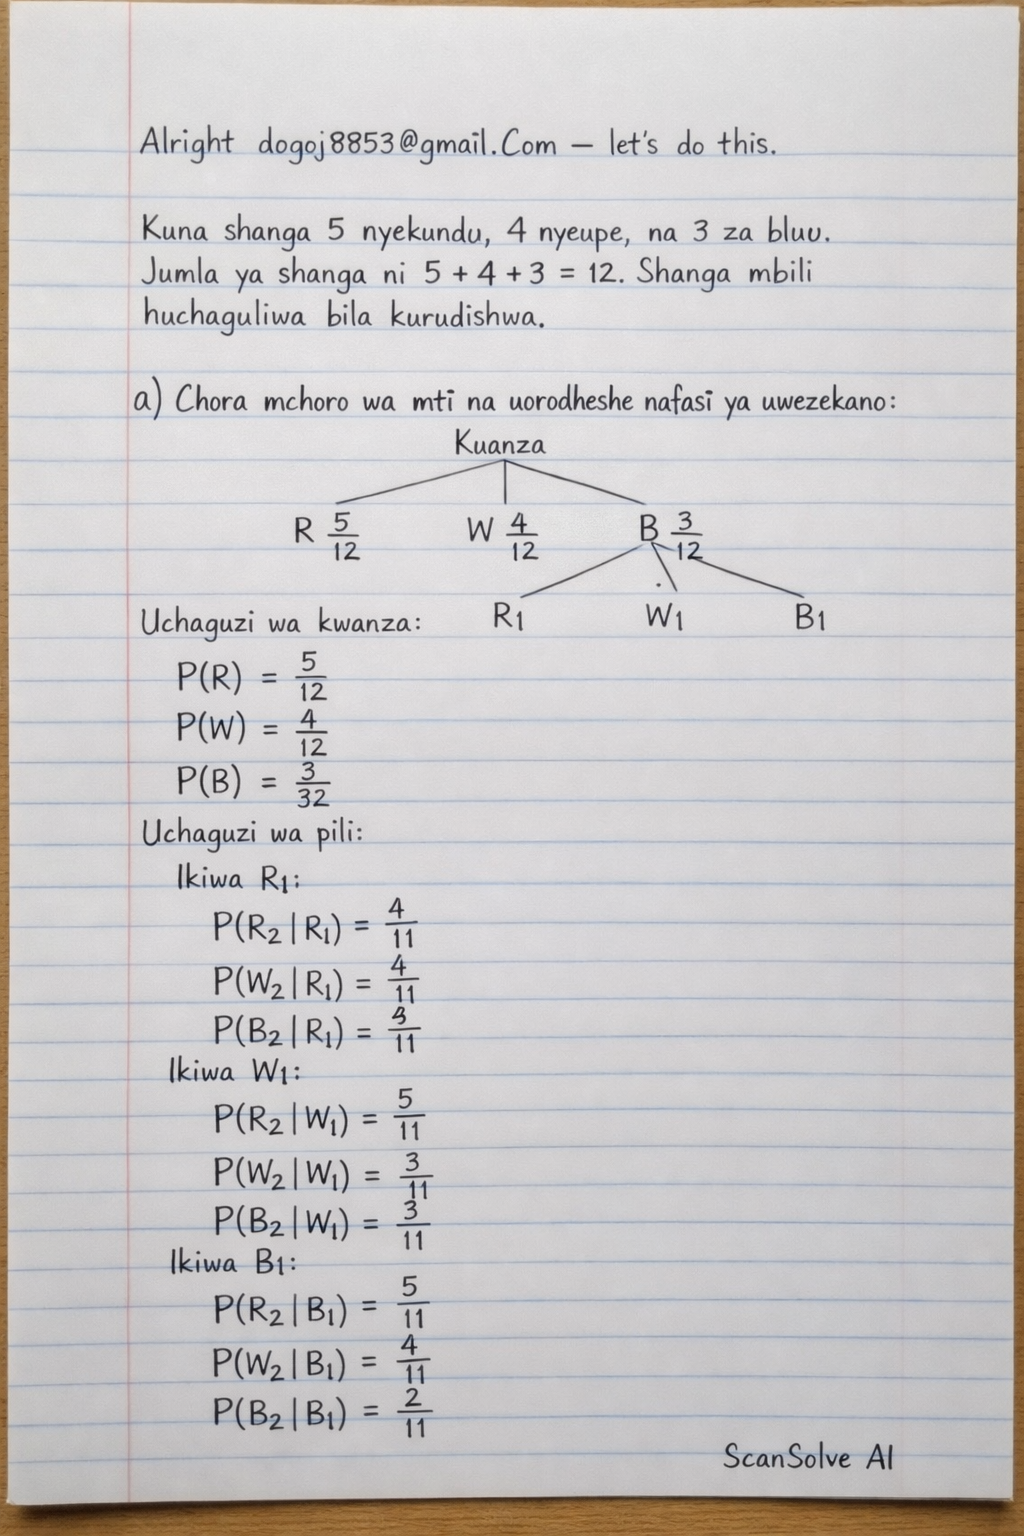 Alright dogoj8853@gmail.Com – let's do this.
Kuna shanga 5 nyekundu, 4 nyeupe, na 3 za bluu.
Jumla ya shanga ni 5 + 4 + 3 = 12. Shanga mbili
huchaguliwa bila kurudishwa.
a) Chora mchoro wa mti na uorodheshe nafasi ya uwezekano:
Kuanza
R 5/12 W 4/12 B 3/12
R1 W1 B1
Uchaguzi wa kwanza:
P(R) = 5/12
P(W) = 4/12
P(B) = 3/32
Uchaguzi wa pili:
Ikiwa R1:
P(R2 | R1) = 4/11
P(W2 | R1) = 4/11
P(B2 | R1) = 3/11
Ikiwa W1:
P(R2 | W1) = 5/11
P(W2 | W1) = 3/11
P(B2 | W1) = 3/11
Ikiwa B1:
P(R2 | B1) = 5/11
P(W2 | B1) = 4/11
P(B2 | B1) = 2/11
ScanSolve AI